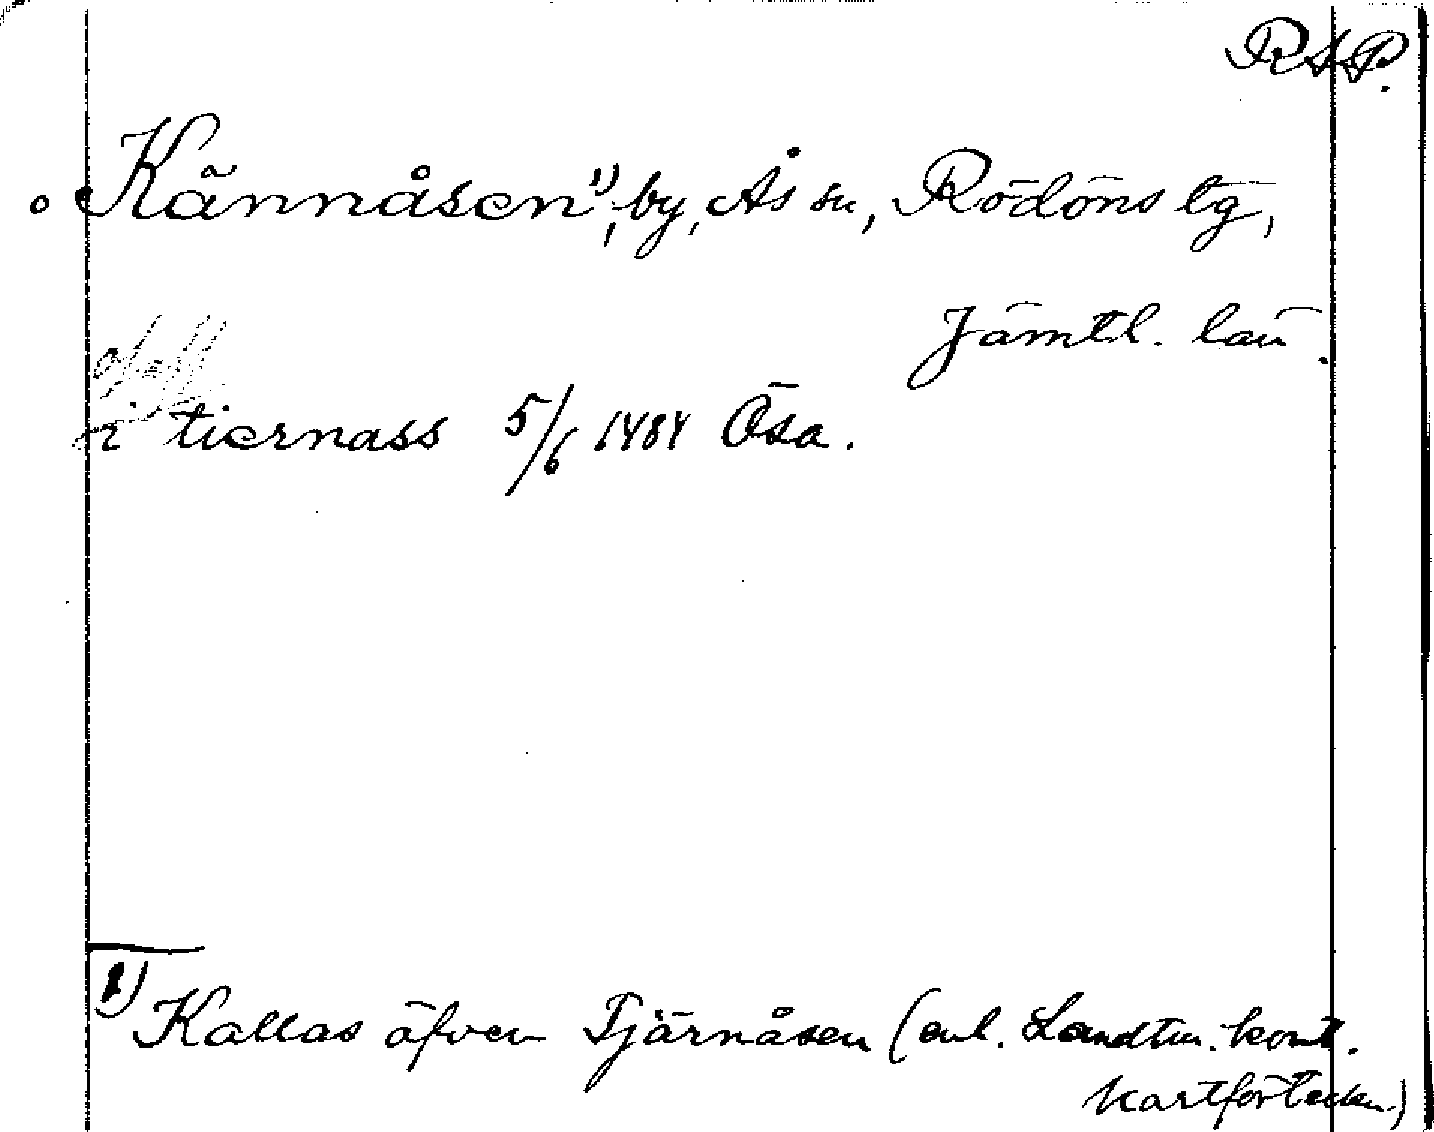 RAP.
Kännåsen¹⁾, by, Ås sn, Rödöns tg,
Jämtl. län.
i tiernass 5/6 1484 Ösa.
1) Kallas äfven Tjärnåsen (enl. Landtm. kont.
kartförteckn.)